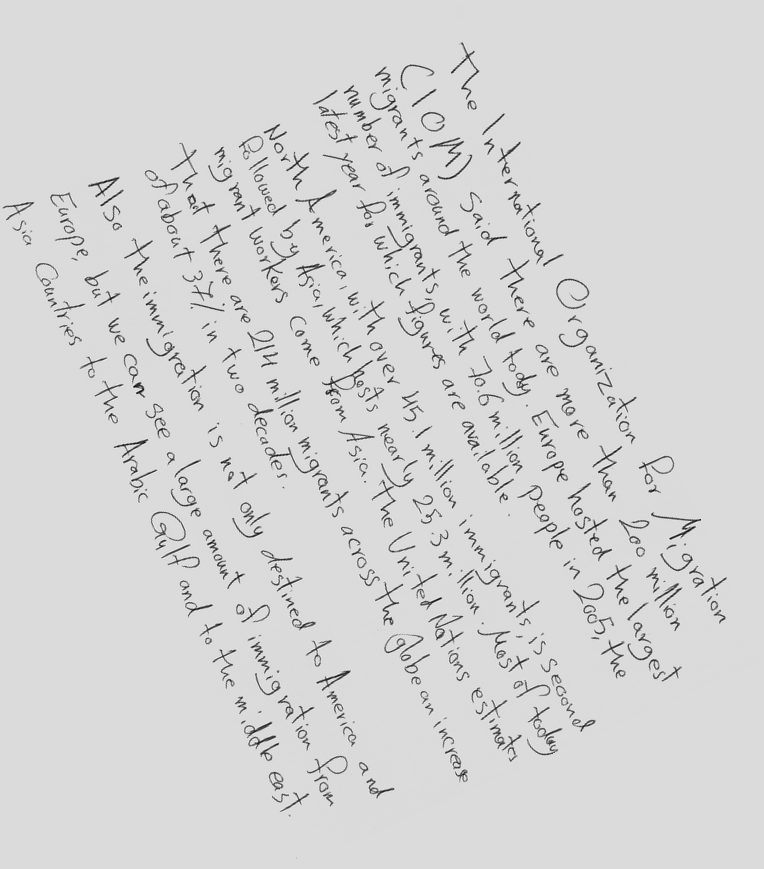 The International Organization for Migration
(IOM) said there are more than 200 million
migrants around the world today. Europe hosted the largest
number of immigrants, with 70.6 million people in 2005, the
latest year for which figures are available.
North America, with over 45.1 million immigrants, is second
followed by Asia, which hosts nearly 25.3 million. Most of today
migrant workers come from Asia. the United Nations estimates
That there are 214 million migrants across the globe an increase
of about 37% in two decades.
Also the immigration is not only destined to America and
Europe, but we can see a large amount of immigration from
Asia Countries to the Arabic Gulf and to the middle east.